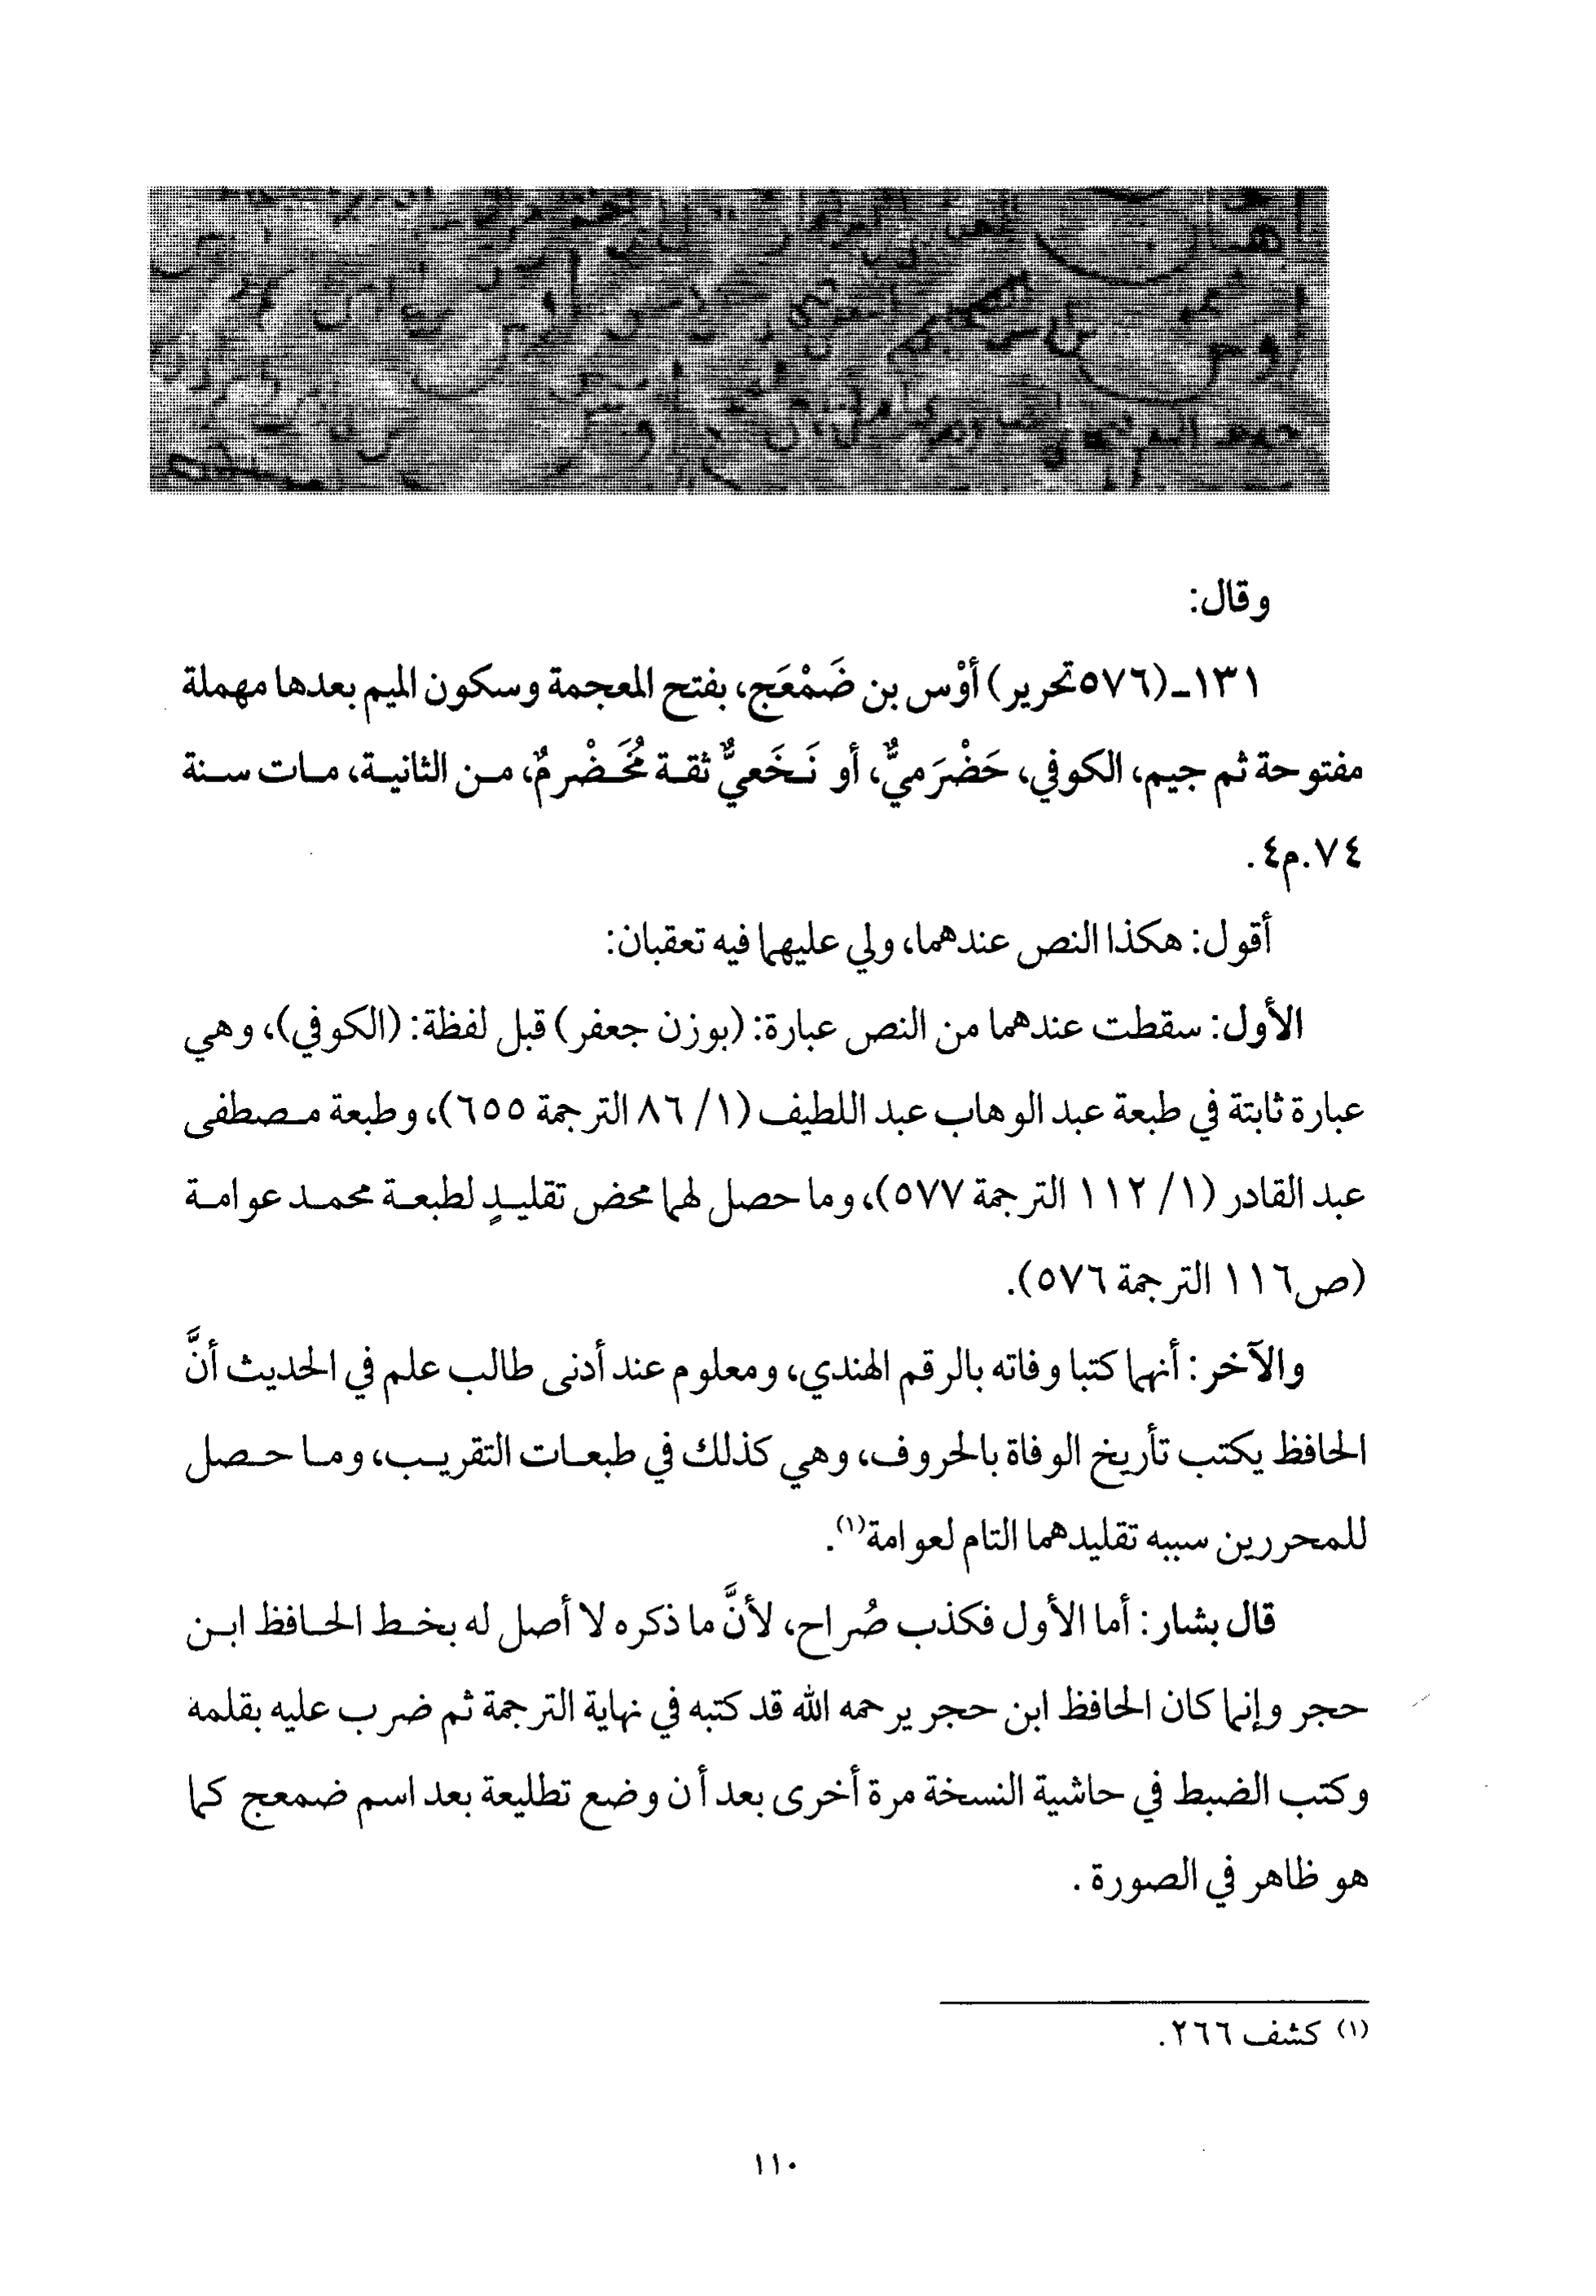 وقال:
١٣١ـ(٥٧٦تحرير) أَوْس بن ضَمْعَج، بفتح المعجمة وسكون الميم بعدها مهملة
مفتوحة ثم جيم، الكوفي، حَضْرَميٌّ، أو نَخَعيٌّ ثقة مُخَضْرمٌ، من الثانية، مات سنة
٧٤.م٤.
أقول: هكذا النص عندهما، ولي عليهما فيه تعقبان:
الأول: سقطت عندهما من النص عبارة: (بوزن جعفر) قبل لفظة: (الكوفي)، وهي
عبارة ثابتة في طبعة عبد الوهاب عبد اللطيف (١/ ٨٦ الترجمة ٦٥٥)، وطبعة مصطفى
عبد القادر (١/ ١١٢ الترجمة ٥٧٧)، وما حصل لهما محض تقليدٍ لطبعة محمد عوامة
(ص١١٦ الترجمة ٥٧٦).
والآخر: أنهما كتبا وفاته بالرقم الهندي، ومعلوم عند أدنى طالب علم في الحديث أنَّ
الحافظ يكتب تأريخ الوفاة بالحروف، وهي كذلك في طبعات التقريب، وما حصل
للمحررين سببه تقليدهما التام لعوامة(١).
قال بشار: أما الأول فكذب صُراح، لأنَّ ما ذكره لا أصل له بخط الحافظ ابن
حجر وإنما كان الحافظ ابن حجر يرحمه الله قد كتبه في نهاية الترجمة ثم ضرب عليه بقلمه
وكتب الضبط في حاشية النسخة مرة أخرى بعد أن وضع تطليعة بعد اسم ضمعج كما
هو ظاهر في الصورة .
(١) كشف ٢٦٦.
١١٠